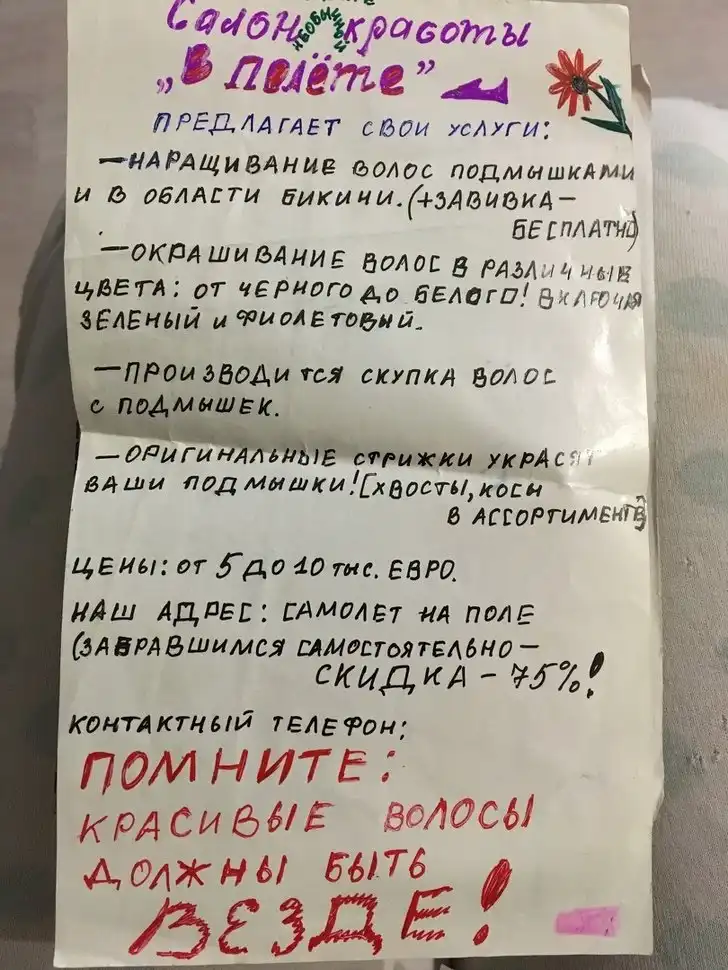 Салон красоты
НЕОБЫЧНЫЙ
„В ПОЛЁТЕ”
ПРЕДЛАГАЕТ СВОИ УСЛУГИ:
—НАРАЩИВАНИЕ ВОЛОС ПОДМЫШКАМИ
И В ОБЛАСТИ БИКИНИ. (+ЗАВИВКА —
БЕСПЛАТНО)
—ОКРАШИВАНИЕ ВОЛОС В РАЗЛИЧНЫЕ
ЦВЕТА: ОТ ЧЕРНОГО ДО БЕЛОГО! ВКЛЮЧАЯ
ЗЕЛЕНЫЙ И ФИОЛЕТОВЫЙ.
—ПРОИЗВОДИТСЯ СКУПКА ВОЛОС
С ПОДМЫШЕК.
—ОРИГИНАЛЬНЫЕ СТРИЖКИ УКРАСЯТ
ВАШИ ПОДМЫШКИ! (ХВОСТЫ, КОСЫ
В АССОРТИМЕНТЕ)
ЦЕНЫ: ОТ 5 ДО 10 тыс. ЕВРО.
НАШ АДРЕС: САМОЛЕТ НА ПОЛЕ
(ЗАБРАВШИМСЯ САМОСТОЯТЕЛЬНО —
СКИДКА – 75%!
КОНТАКТНЫЙ ТЕЛЕФОН:
ПОМНИТЕ:
КРАСИВЫЕ ВОЛОСЫ
ДОЛЖНЫ БЫТЬ
ВЕЗДЕ!